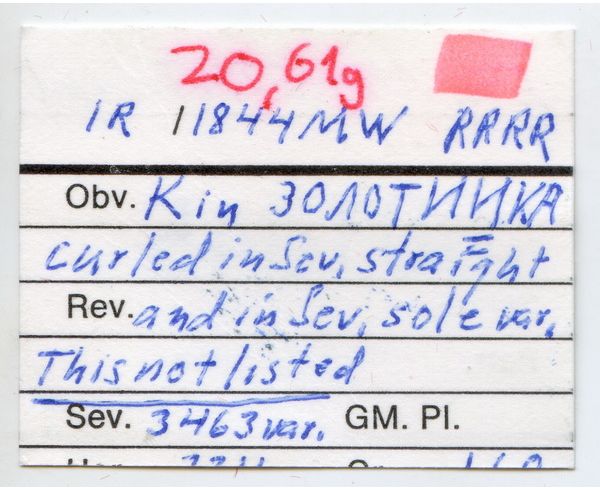 20,61g
1R 1844 MW RRRR
Obv. K in ЗОЛОТНИКА
curled in Sev, straight
Rev. and in Sev, sole var.
This not listed
Sev. 3463 var. GM. Pl.